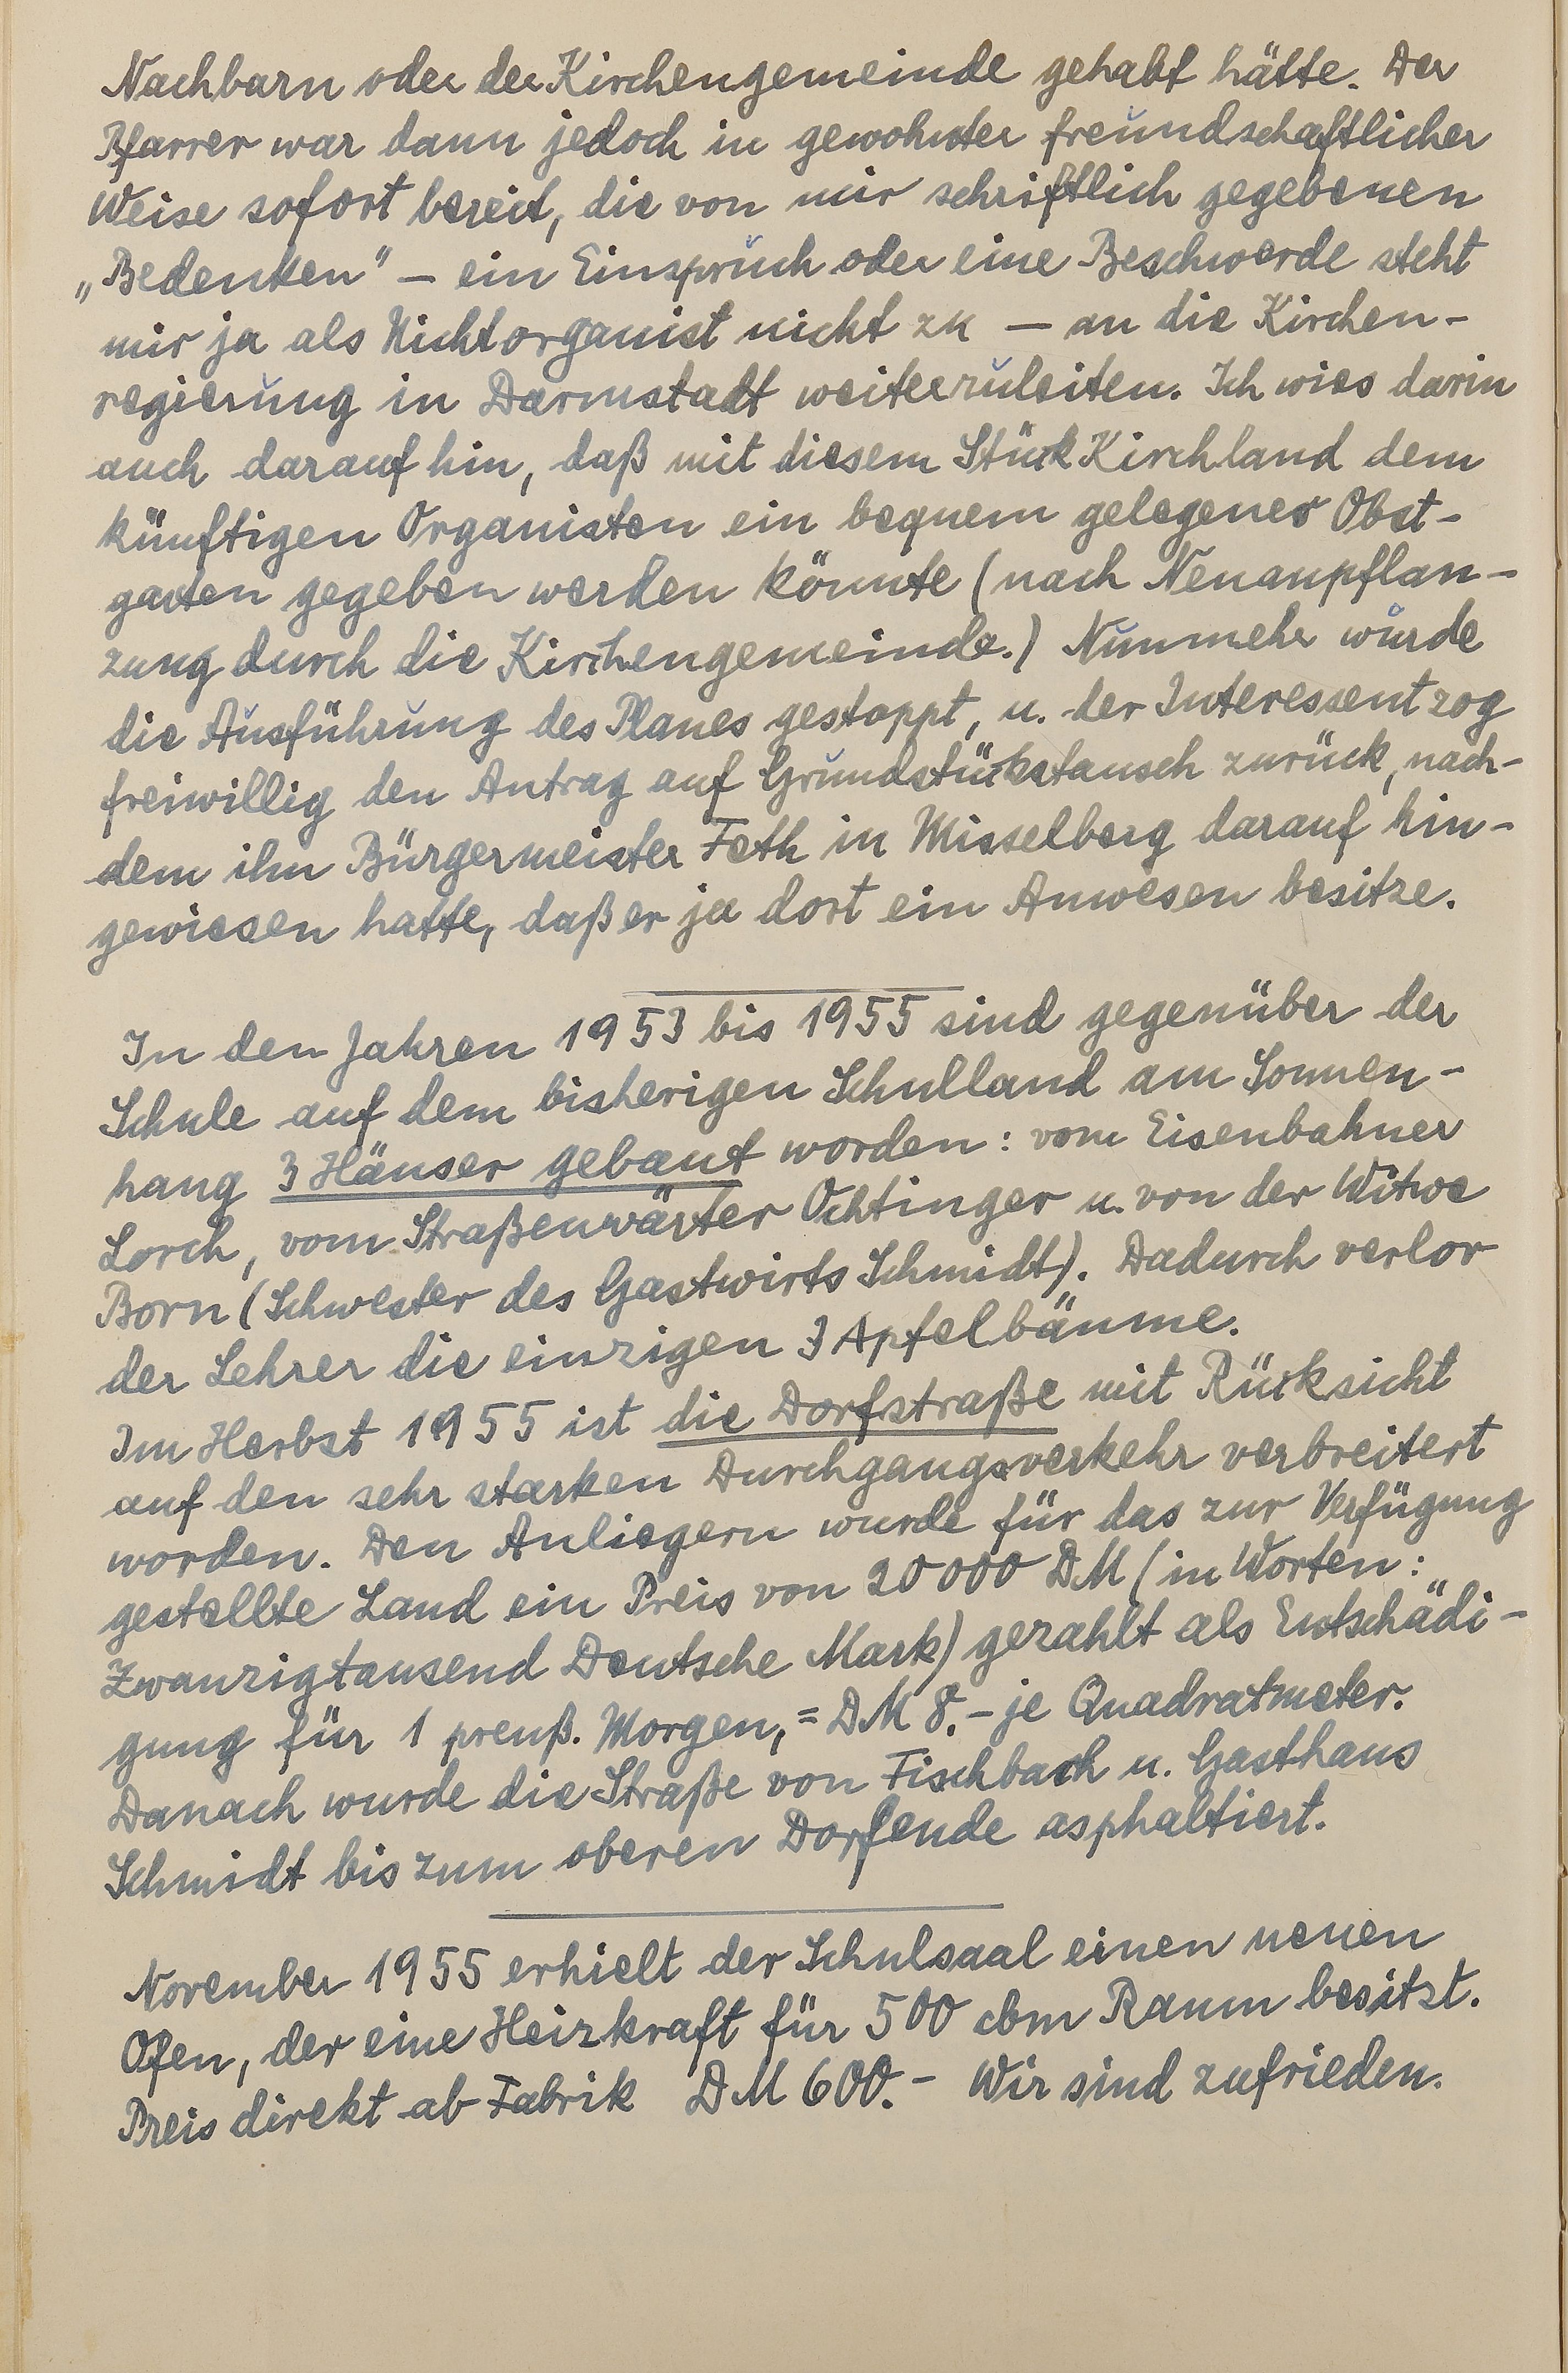 Nachbarn oder der Kirchengemeinde gehabt hätte. Der
Pfarrer war dann jedoch in gewohnter freundschaftlicher
Weise sofort bereit, die von mir schriftlich gegebenen
„Bedenken" – ein Einspruch oder eine Beschwerde steht
mir ja als Nichtorganist nicht zu – an die Kirchen-
regierung in Darmstadt weiterzuleiten. Ich wies darin
auch darauf hin, daß mit diesem Stück Kirchland dem
künftigen Organisten ein bequem gelegener Obst-
garten gegeben werden könnte (nach Neuanpflan-
zung durch die Kirchengemeinde.) Nunmehr wurde
die Ausführung des Planes gestoppt, u. der Interessent zog
freiwillig den Antrag auf Grundstückstausch zurück, nach-
dem ihn Bürgermeister Feth in Misselberg darauf hin-
gewiesen hatte, daß er ja dort ein Anwesen besitze.
In den Jahren 1953 bis 1955 sind gegenüber der
Schule auf dem bisherigen Schulland am Sonnen-
hang 3 Häuser gebaut worden: vom Eisenbahner
Lorch, vom Straßenwärter Ochtinger u. von der Witwe
Born (Schwester des Gastwirts Schmidt). Dadurch verlor
der Lehrer die einzigen 3 Apfelbäume.
Im Herbst 1955 ist die Dorfstraße mit Rücksicht
auf den sehr starken Durchgangsverkehr verbreitert
worden. Den Anliegern wurde für das zur Verfügung
gestellte Land ein Preis von 20000 DM (in Worten:
Zwanzigtausend Deutsche Mark) gezahlt als Entschädi-
gung für 1 preuß. Morgen, = DM 8.- je Quadratmeter.
Danach wurde die Straße von Fischbach u. Gasthaus
Schmidt bis zum oberen Dorfende asphaltiert.
November 1955 erhielt der Schulsaal einen neuen
Ofen, der eine Heizkraft für 500 cbm Raum besitzt.
Preis direkt ab Fabrik DM 600.- Wir sind zufrieden.